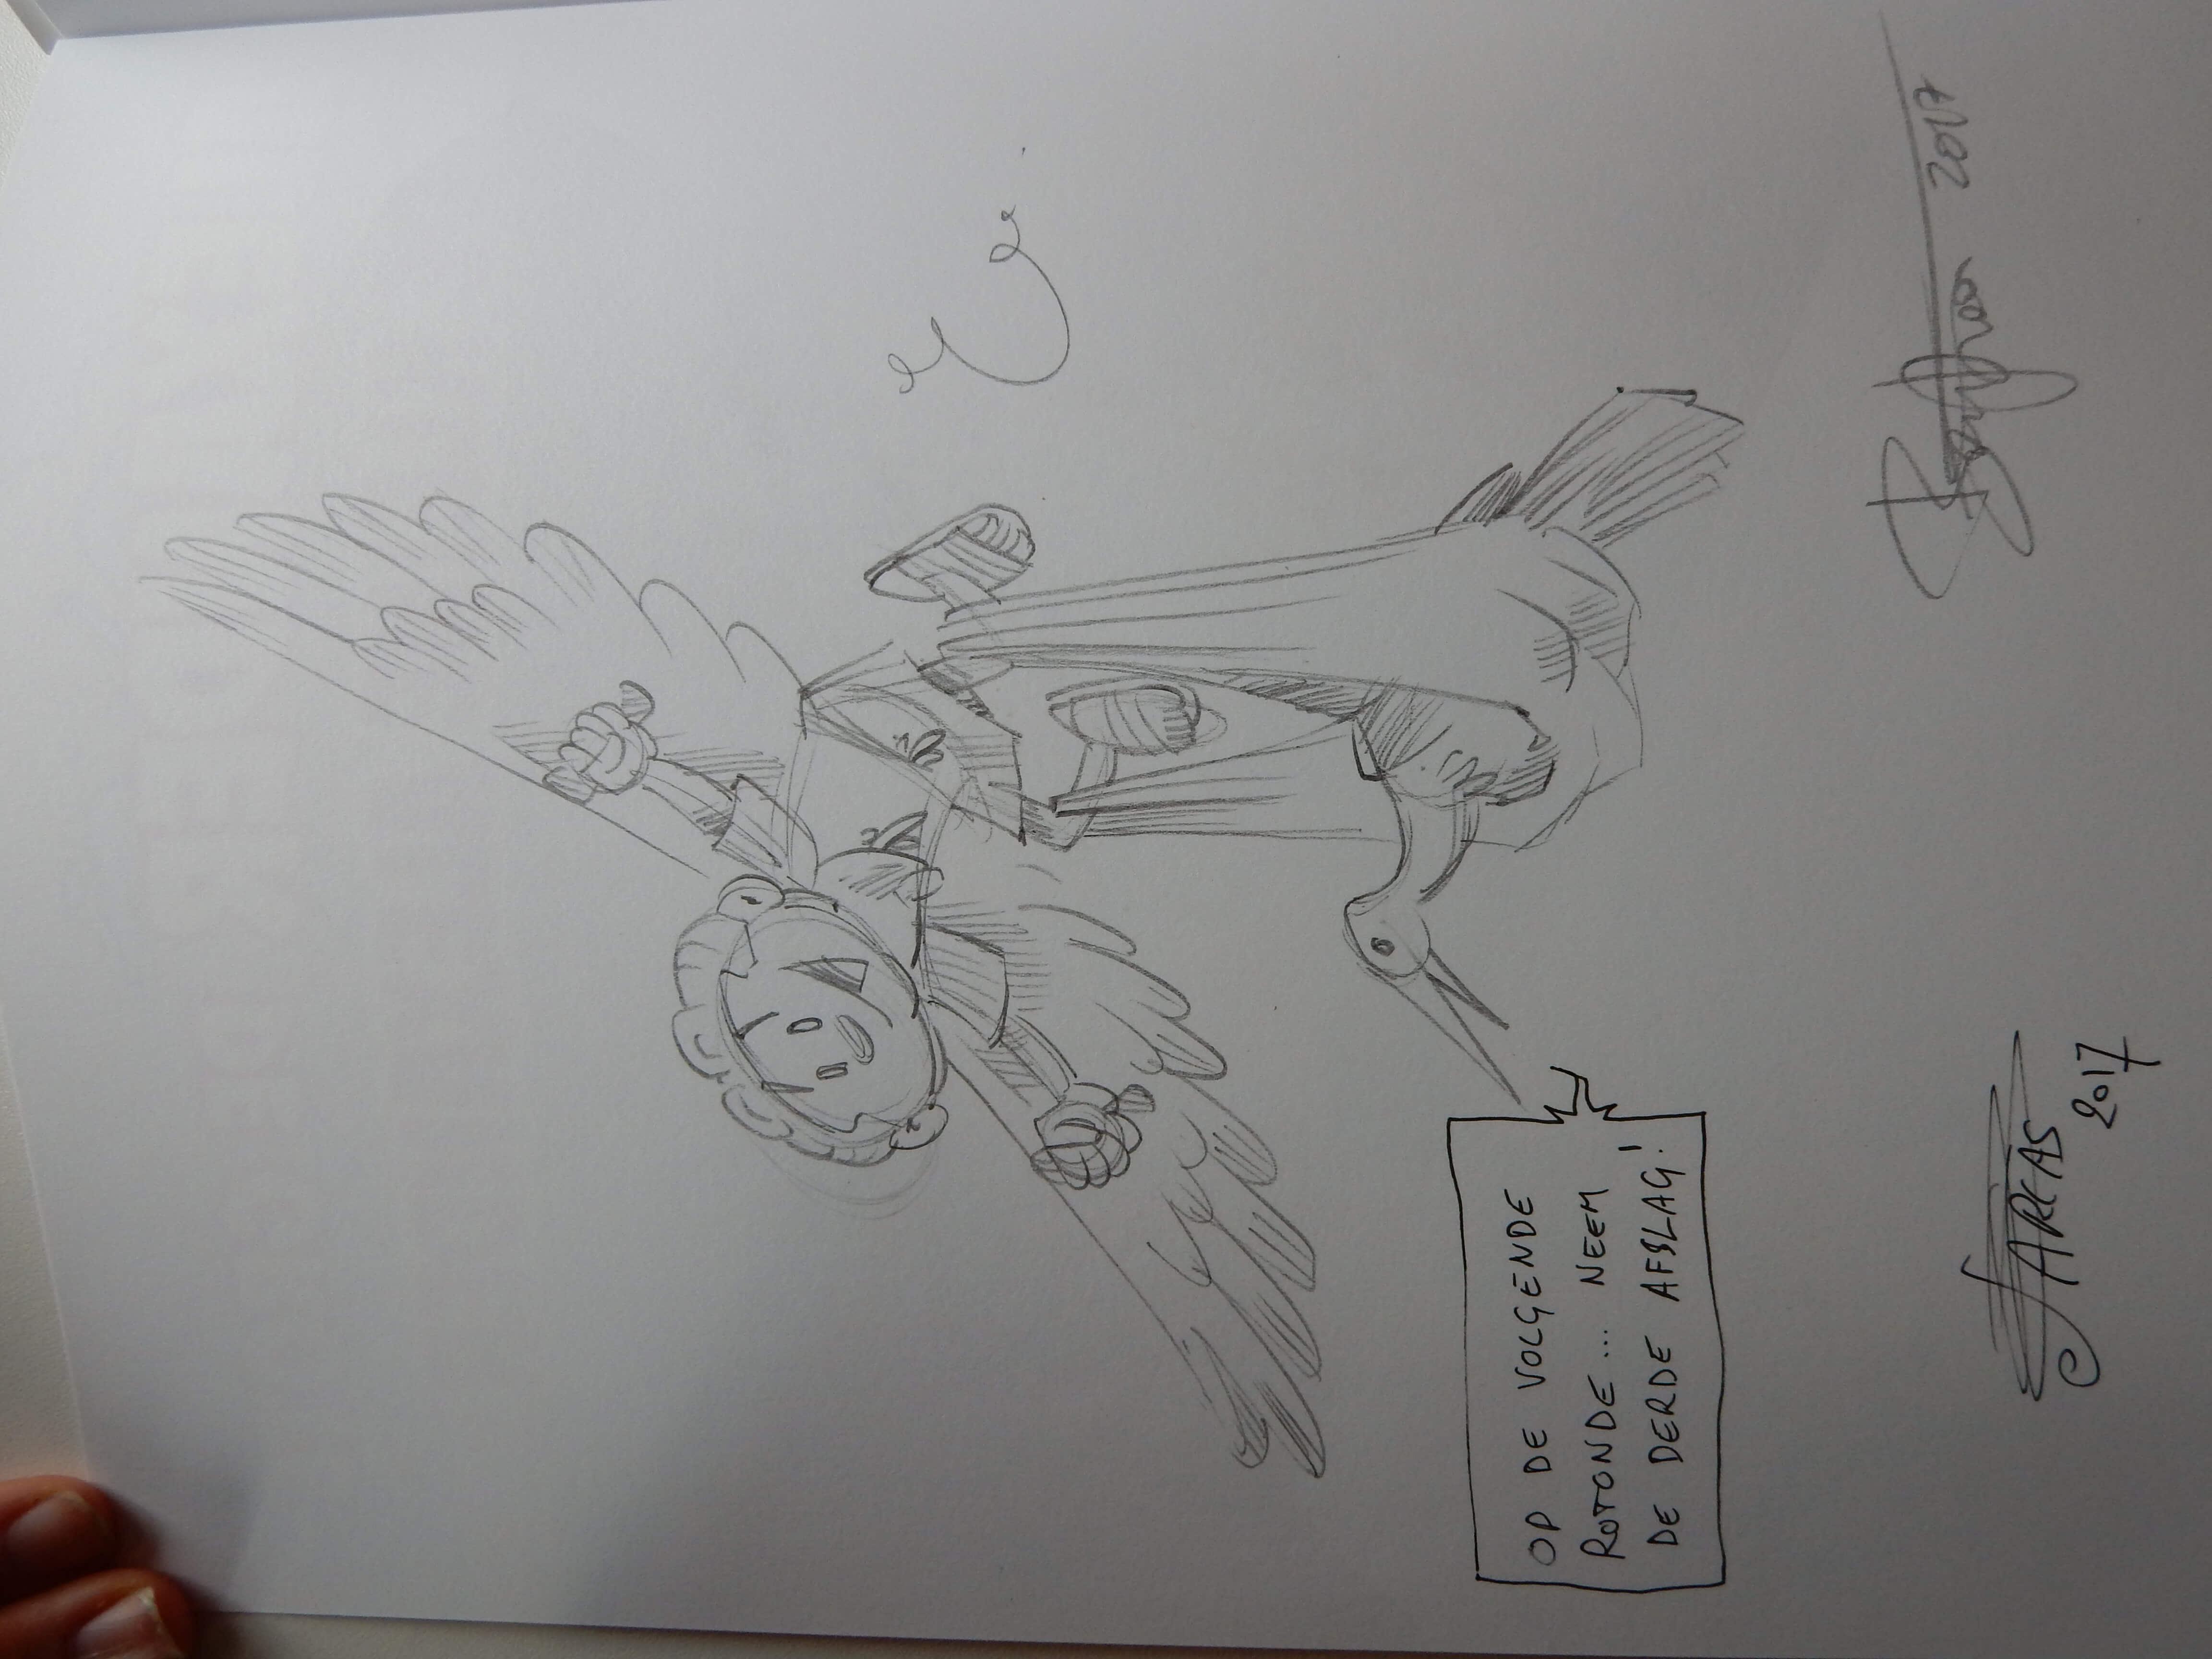 OP DE VOLGENDE
ROTONDE... NEEM
DE DERDE AFSLAG!
JARCAS
2017
2017